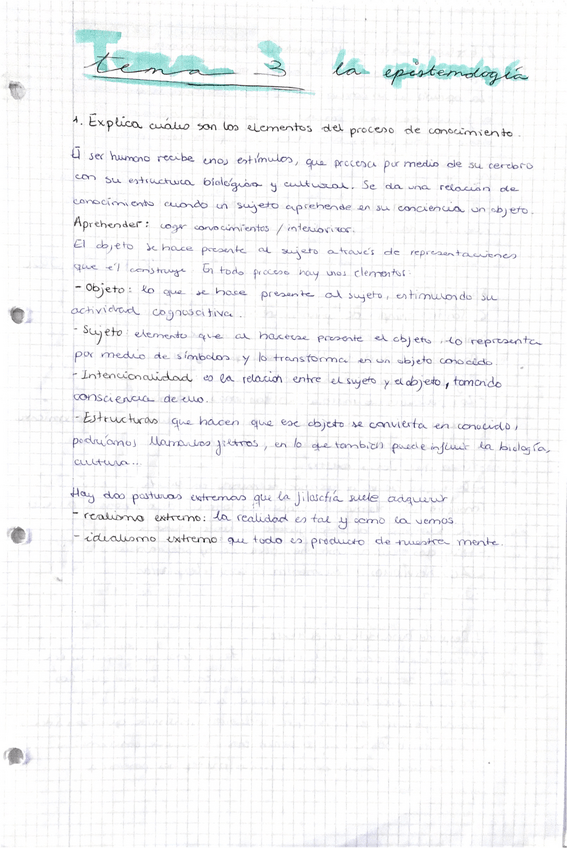 tema 3 la epistemología
1. Explica cuáles son los elementos del proceso de conocimiento.
El ser humano recibe unos estímulos, que procesa por medio de su cerebro
con su estructura biológica y cultural. Se da una relación de
conocimiento cuando un sujeto aprehende en su conciencia un objeto.
Aprehender: coger conocimientos / interiorizar.
El objeto se hace presente al sujeto através de representaciones
que él construye En todo proceso hay unos elementos:
- Objeto: lo que se hace presente al sujeto, estimulando su
actividad cognoscitiva.
- Sujeto elemento que al hacerse presente el objeto, lo representa
por medio de símbolos y lo transforma en un objeto conocido.
- Intencionalidad es la relación entre el sujeto y el objeto, tomando
consciencia de ello.
- Estructuras que hacen que ese objeto se convierta en conocido,
podríamos llamarlos filtros, en lo que también puede influir la biología,
cultura...
Hay dos posturas extremas que la filosofía suele adquirir
- realismo extremo: la realidad es tal y como la vemos.
- idealismo extremo que todo es producto de nuestra mente.